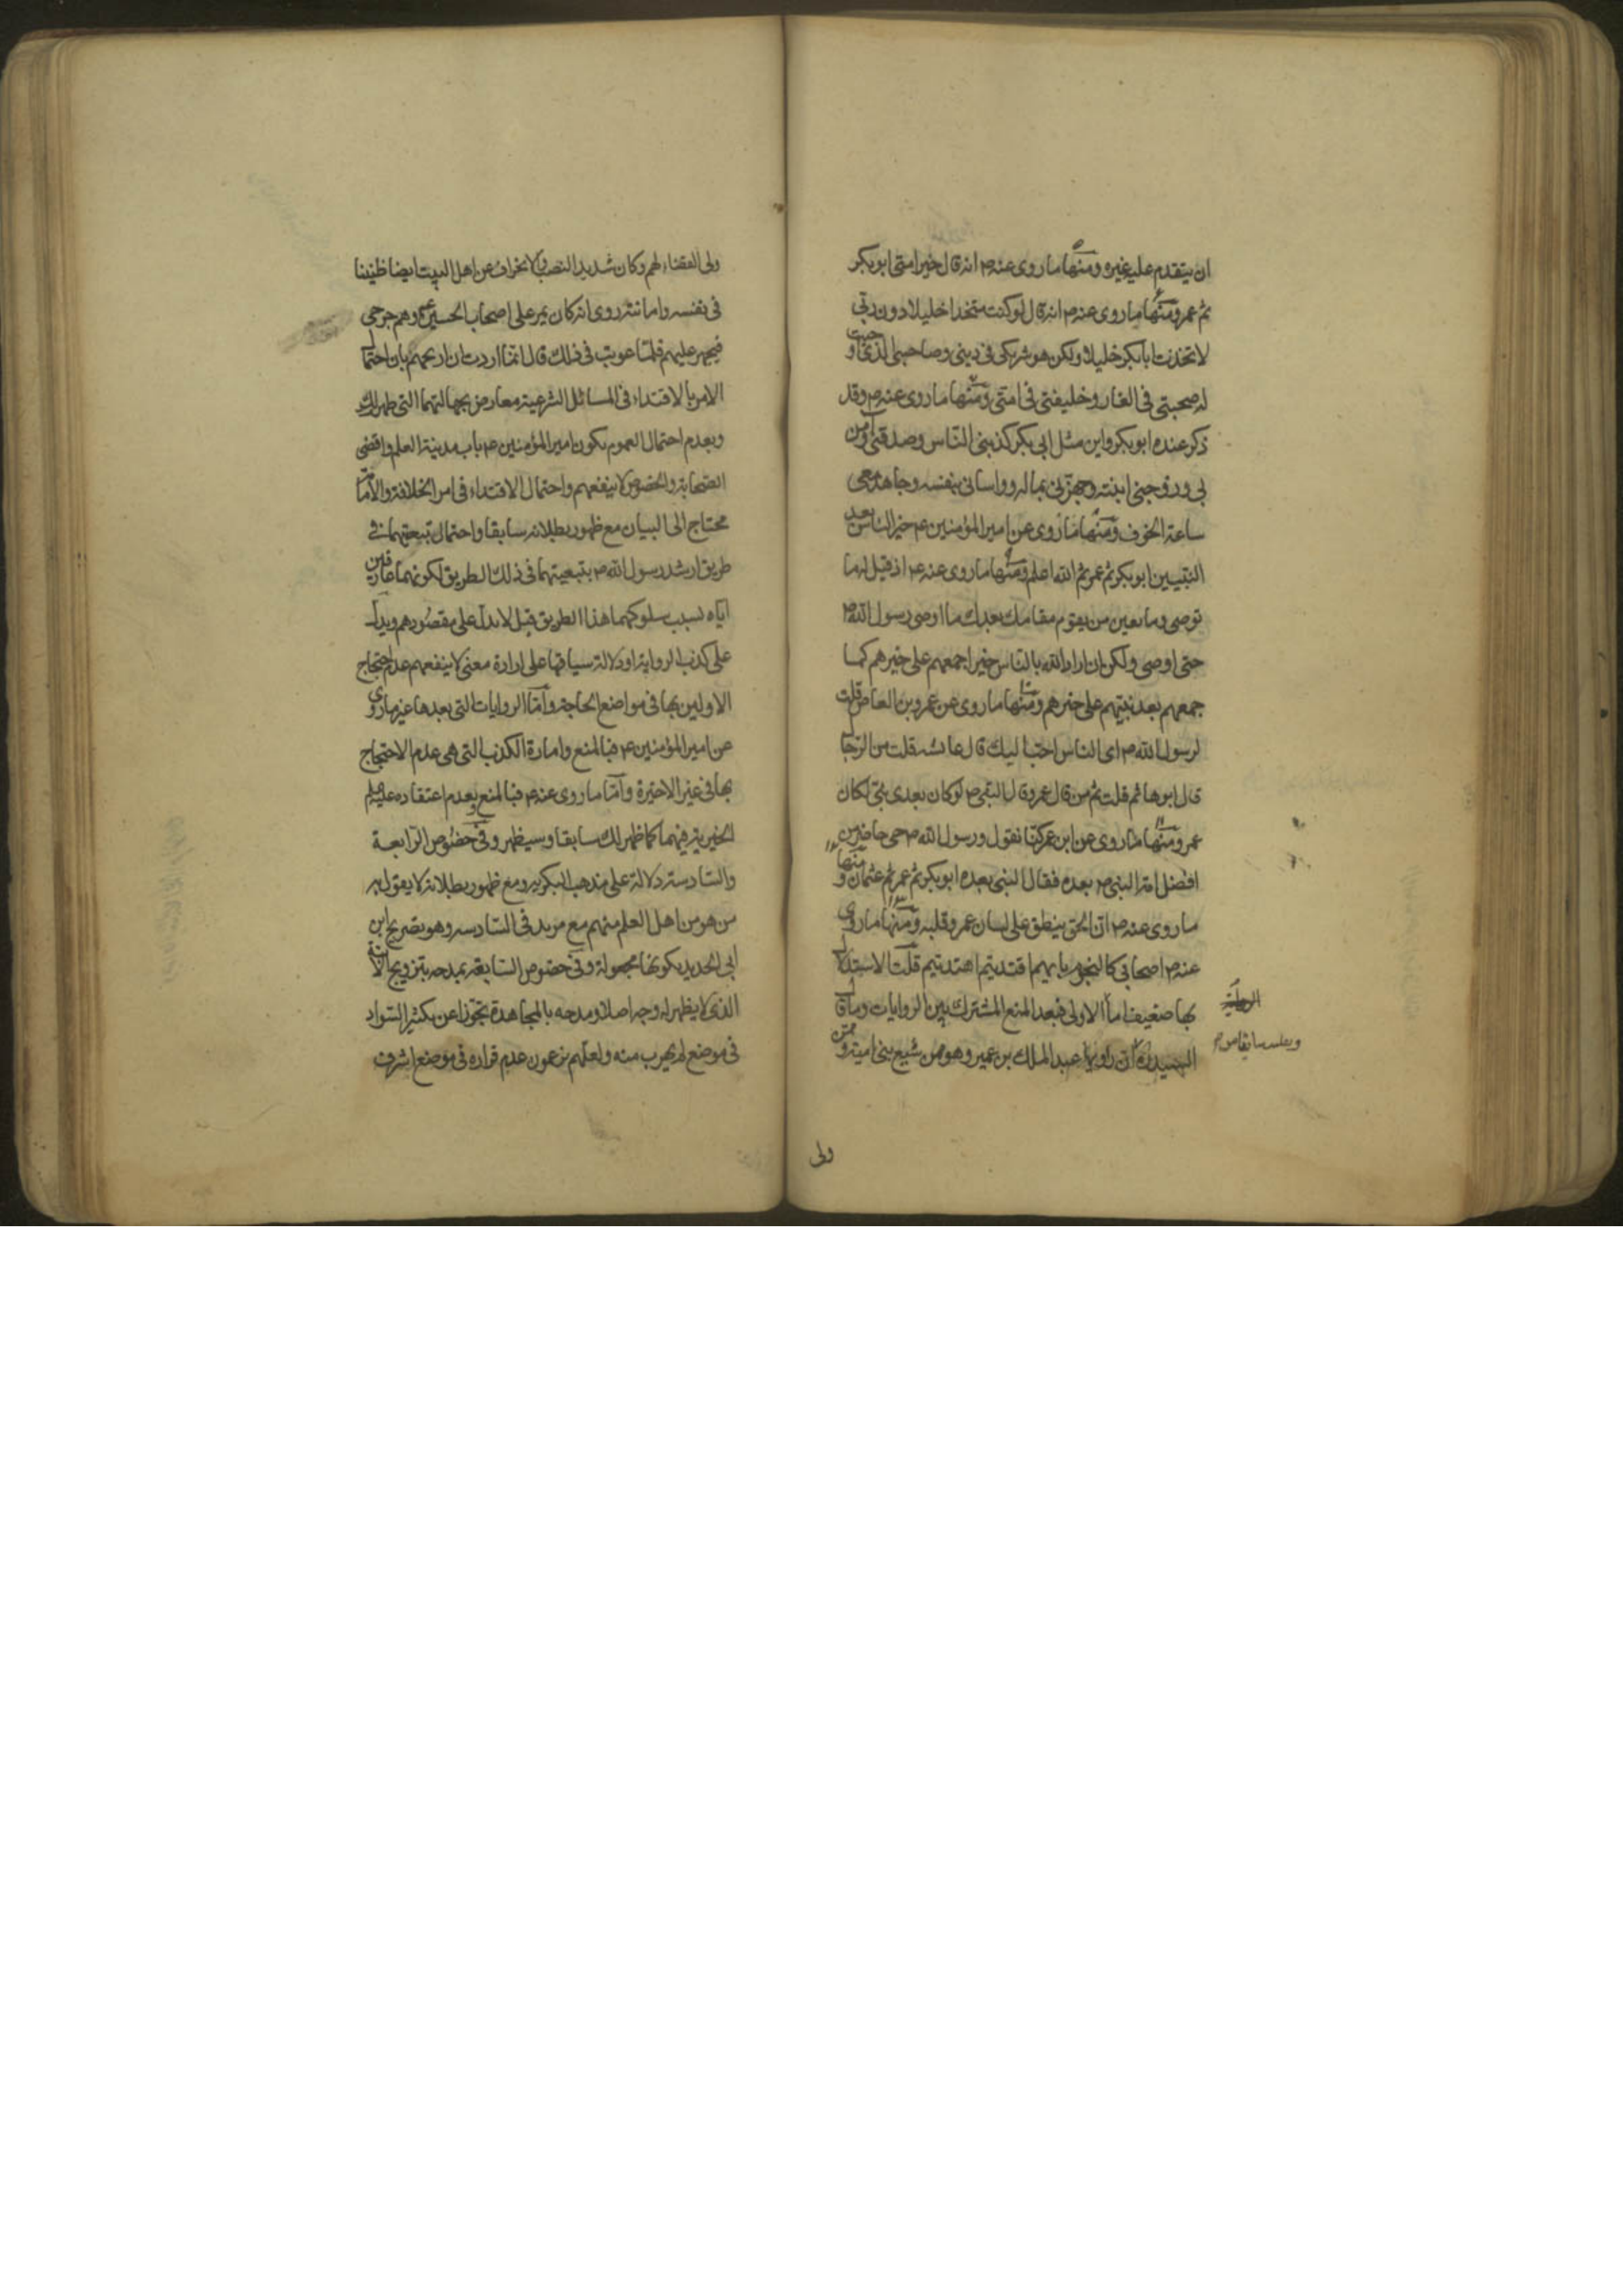 ان يتقدم عليه غيره ومنها ما روى عنه ص انه قال خير امتى ابو بكر
ثم عمر ومنها ما روى عنه ص انه قال لو كنت متخذا خليلا دون ربى
لاتخذت ابا بكر خليلا ولكن هو شريكى فى دينى وصاحبى الذى اوجبت
له صحبتى فى الغار وخليفتى فى امتى ومنها ما روى عنه ص وقد
ذكر عنده ابو بكر واين مثل ابى بكر كذبنى الناس وصدقنى وآمن
بى وزوجنى ابنته وجهزنى بماله وواسانى بنفسه وجاهد معى
ساعة الخوف ومنها ما روى عن امير المؤمنين ع خير الناس بعد
النبيين ابو بكر ثم عمر ثم الله اعلم ومنها ما روى عنه ع اذ قيل له ما
توصى وما تعين من يقوم مقامك بعدك ما اوصى رسول الله ص
حتى اوصى ولكن ان اراد الله بالناس خيرا جمعهم على خيرهم كما
جمعهم بعد نبيهم على خيرهم ومنها ما روى عن عمرو بن العاص قلت
لرسول الله ص اى الناس احب اليك قال عائشه قلت من الرجال
قال ابوها ثم قلت ثم من قال عمر وقال النبى ص لو كان بعدى نبى لكان
عمر ومنها ما روى عن ابن عمر كنا نقول ورسول الله ص حى حاضر من
افضل امة النبى ص بعده فقال النبى بعده ابو بكر ثم عمر ثم عثمان ومنها
ما روى عنه ص ان الحق ينطق على لسان عمر وقلبه ومنها ما روى
عنه ص اصحابى كالنجوم بايهم اقتديتم اهتديتم قلت الاستدلال
بها ضعيف اما الاولى فبعد المنع المشترك بين الروايات وما قال
السيد ره ان راويها عبد الملك بن عمير وهو من شيع بنى امية وممن
ولى
ولى القضاء لهم وكان شديد النصب والانحراف عن اهل البيت ايضا ظنينا
فى نفسه وامانته روى انه كان يمر على اصحاب الحسين ع وهم جرحى
فيجهز عليهم فلما عوتب فى ذلك قال انما اردت ان اريحهم بان احتمال
الامر بالاقتداء فى المسائل الشرعية معارض بجهالتهما التى ظهر لك
وبعدم احتمال العموم بكون امير المؤمنين ع باب مدينة العلم واقضى
الصحابة والخصوص لا ينفعهم واحتمال الاقتداء فى امر الخلافة والامامة
محتاج الى البيان مع ظهور بطلانه سابقا واحتمال تبعيتهما فى
طريق ارشد رسول الله ص بتبعيتهما فى ذلك الطريق لكونهما عارفين
اياه بسبب سلوكهما هذا الطريق قبل لا يدل على مقصودهم ويدل
على كذب الرواية او دلالة سياقها على ارادة معنى لا ينفعهم عدم احتجاج
الاولين بها فى مواضع الحاجة واما الروايات التى بعدها غير ما روى
عن امير المؤمنين ع فبالمنع وامارة الكذب التى هى عدم الاحتجاج
بها فى غير الاخيرة واما ما روى عنه ع فبالمنع وبعدم اعتقاده عليه السلم
الخيرية فيهما كما ظهر لك سابقا وسيظهر وفى خصوص الرابعة
والسادسة دلالة على مذهب البكرية ومع ظهور بطلانه لا يقول به
من هو من اهل العلم منهم مع مزيد فى السادسه وهو تصريح ابن
ابى الحديد بكونها مجعولة وفى خصوص السابعة بمدحه بتزويج الابنة
الذى لا يظهر له وجه اصلا ومدحه بالمجاهدة تجوزا عن تكثير السواد
فى موضع لم يهرب منه ولعلهم يزعمون عدم فراره فى موضع اشرف